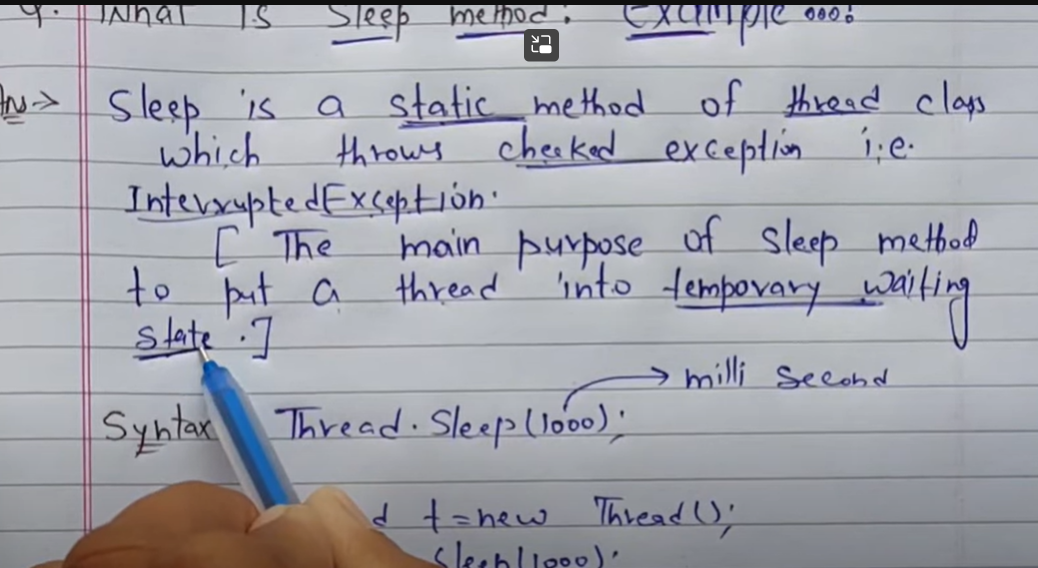 What is Sleep method. Example ....
Ans→ Sleep is a static method of thread class
which throws checked exception i.e.
InterruptedException.
[ The main purpose of sleep method
to put a thread into temporary waiting
state .]
→ milli second
Syntax Thread.Sleep(1000);
d t=new Thread();
Sleep(1000);